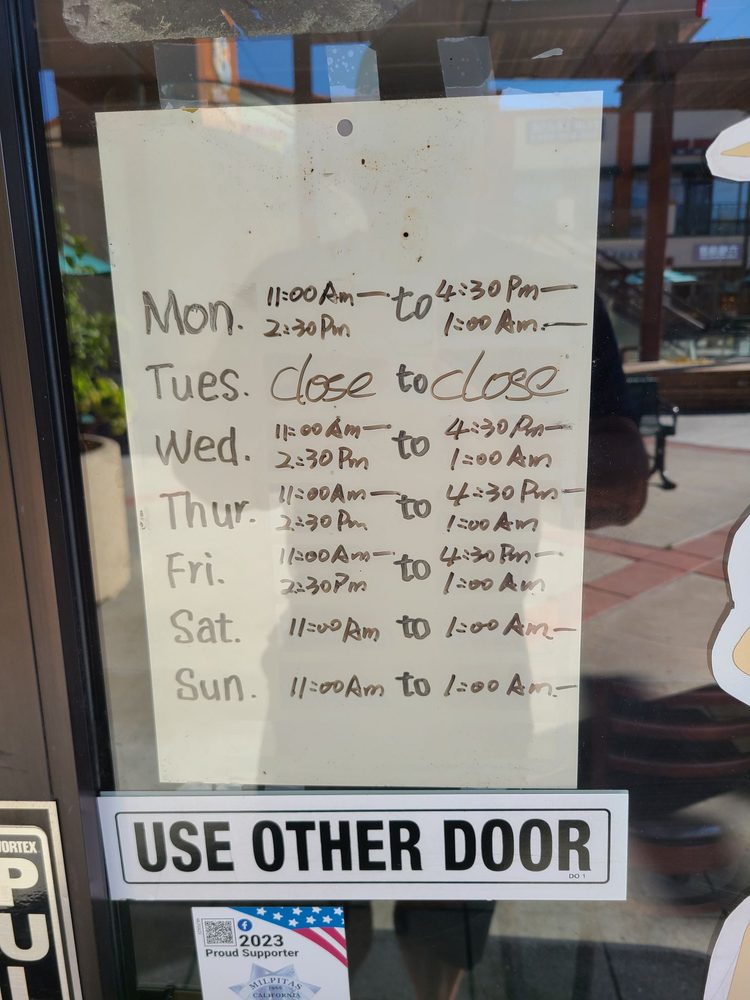 Mon. 11:00 Am — to 4:30 Pm —
2:30 Pm 1:00 Am. —
Tues. close to close
Wed. 11:00 Am — to 4:30 Pm —
2:30 Pm 1:00 Am
Thur. 11:00 Am — to 4:30 Pm —
2:30 Pm 1:00 Am
Fri. 11:00 Am — to 4:30 Pm —
2:30 Pm 1:00 Am
Sat. 11:00 Am to 1:00 Am —
Sun. 11:00 Am to 1:00 Am. —
USE OTHER DOOR
DO 1
2023
Proud Supporter
MILPITAS
CALIFORNIA